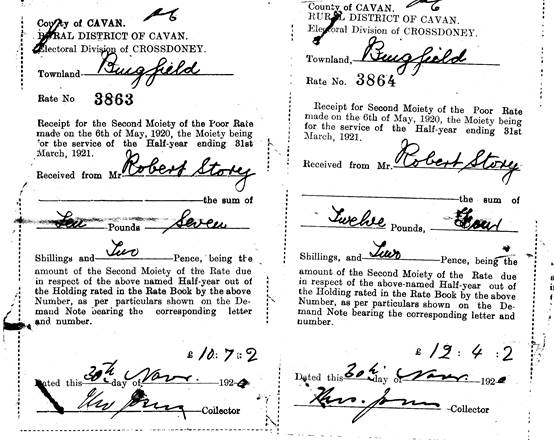 County of CAVAN.
RURAL DISTRICT OF CAVAN.
Electoral Division of CROSSDONEY.
Townland Bingfield
Rate No 3863
Receipt for the Second Moiety of the Poor Rate
made on the 6th of May, 1920, the Moiety being
for the service of the Half-year ending 31st
March, 1921.
Received from Mr Robert Story
the sum of
Ten Pounds Seven
Shillings, and Two Pence, being the
amount of the Second Moiety of the Rate due
in respect of the above named Half-year out of
the Holding rated in the Rate Book by the above
Number, as per particulars shown on the De-
mand Note bearing the corresponding letter
and number.
£ 10 : 7 : 2
Dated this 30th day of Novr. 1920
Collector
County of CAVAN.
RURAL DISTRICT OF CAVAN.
Electoral Division of CROSSDONEY.
Townland, Bingfield
Rate No. 3864
Receipt for Second Moiety of the Poor Rate
made on the 6th of May, 1920, the Moiety being
for the service of the Half-year ending 31st
March, 1921.
Received from Mr. Robert Story
the sum of
Twelve Pounds, Four
Shillings, and Two Pence, being the
amount of the Second Moiety of the Rate due
in respect of the above-named Half-year out of
the Holding rated in the Rate Book by the above
Number, as per particulars shown on the De-
mand Note bearing the corresponding letter and
number.
£ 12 : 4 : 2
Dated this 30th day of Novr. 1920
Collector